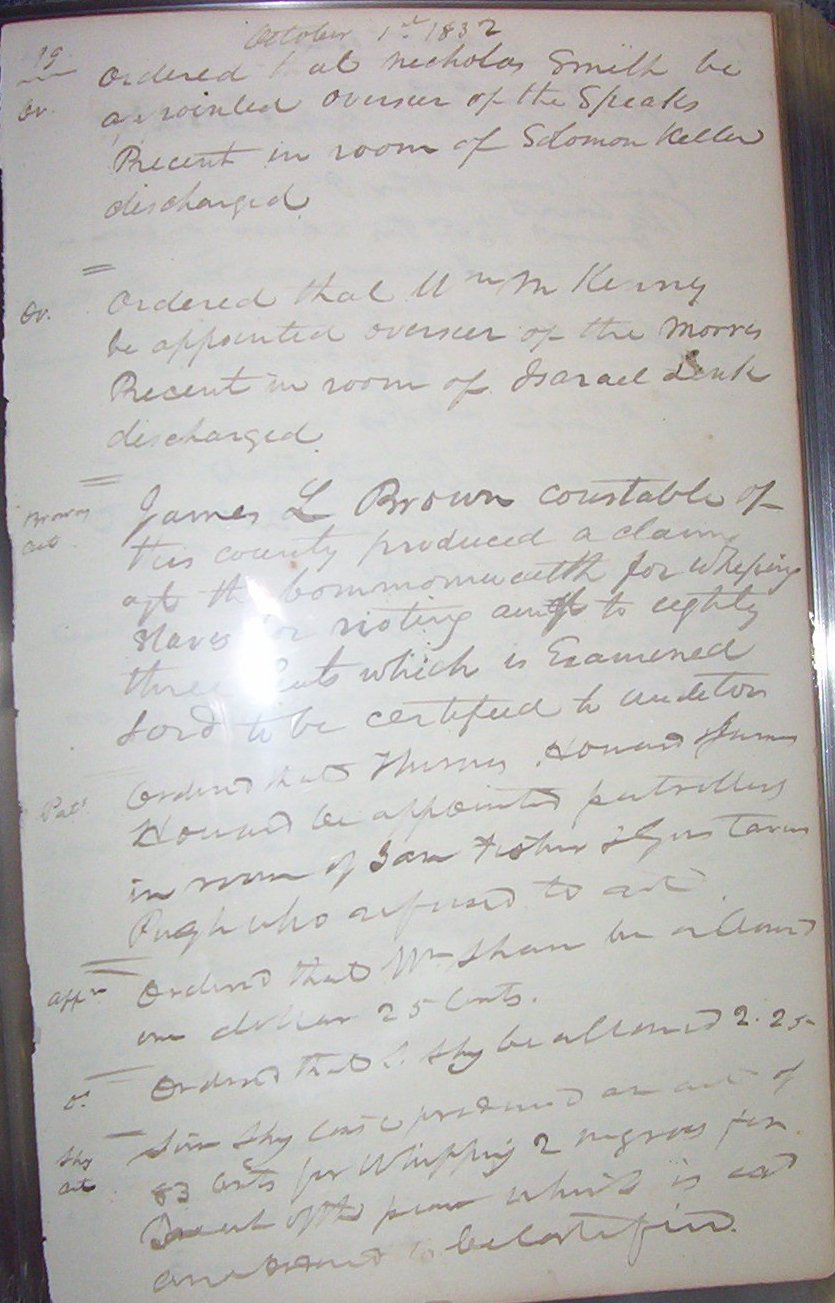 October 1st 1832
19
Ordered that Nicholas Smith be
Ov. appointed overseer of the Speaks
Precent in room of Solomon Keller
discharged
Ov. Ordered that Wm M Kenny
be appointed overseer of the Morris
Precent in room of Isarael Lenk
discharged
Browns James L Brown constable of
act this county produced a claim
agt the Commomwealth for whiping
slaves for rioting amt to eighty
three Cents which is Examined
& ord to be certified to auditor
Patl Ordered that Thomas Howard & James
Howard be appointed patrollers
in room of Sam Fisher &
Pugh who refused to act
appn Ordered that Wm Sham be allowed
one dollar 25 Cents.
o. Ordered that Shy be allowed 2.25
Shy Sim Shy Const produced an act of
act 83 Cents for Whipping 2 negroes for
Breach of the peace which is
and to be Certified.